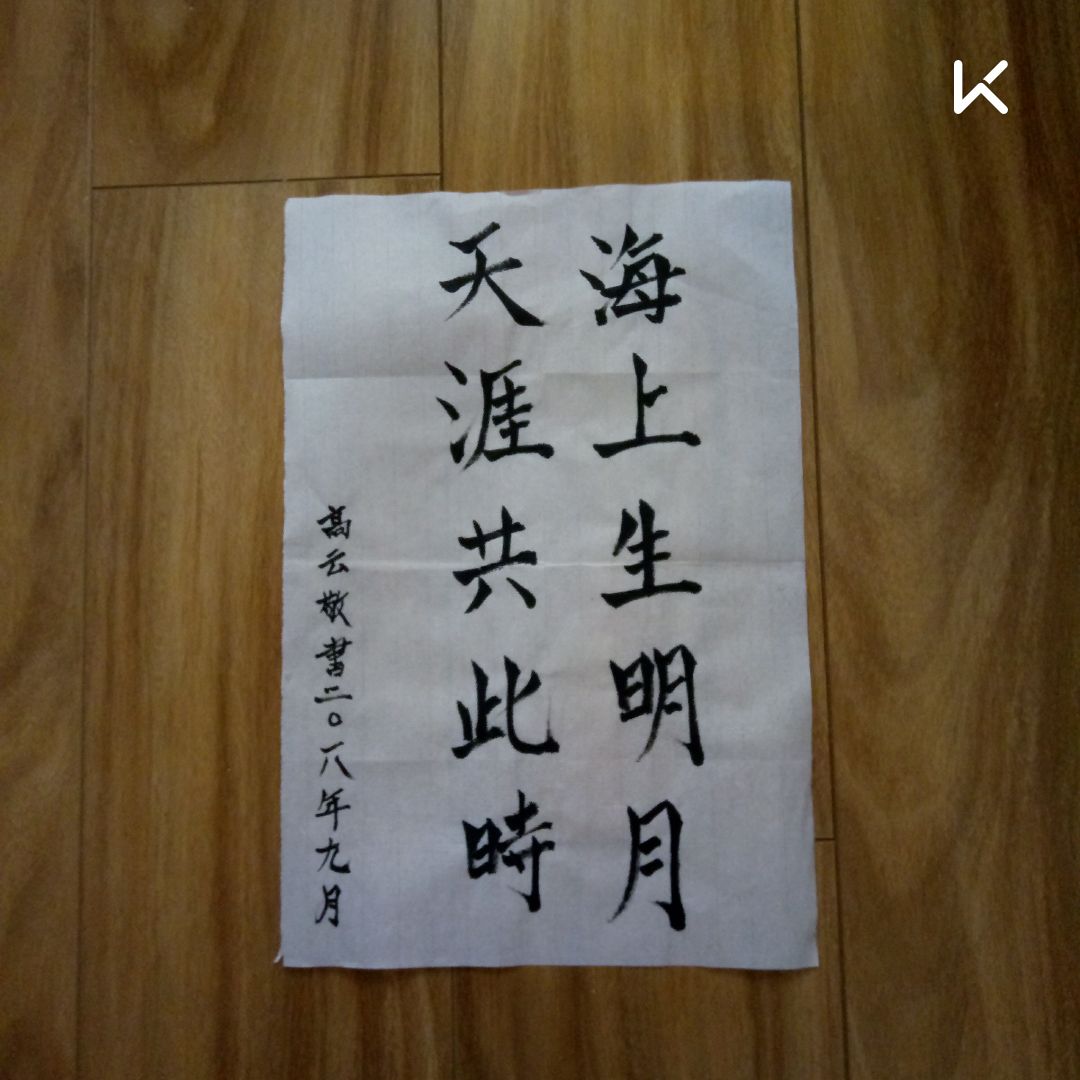 海上生明月
天涯共此時
高云敬書二〇一八年九月